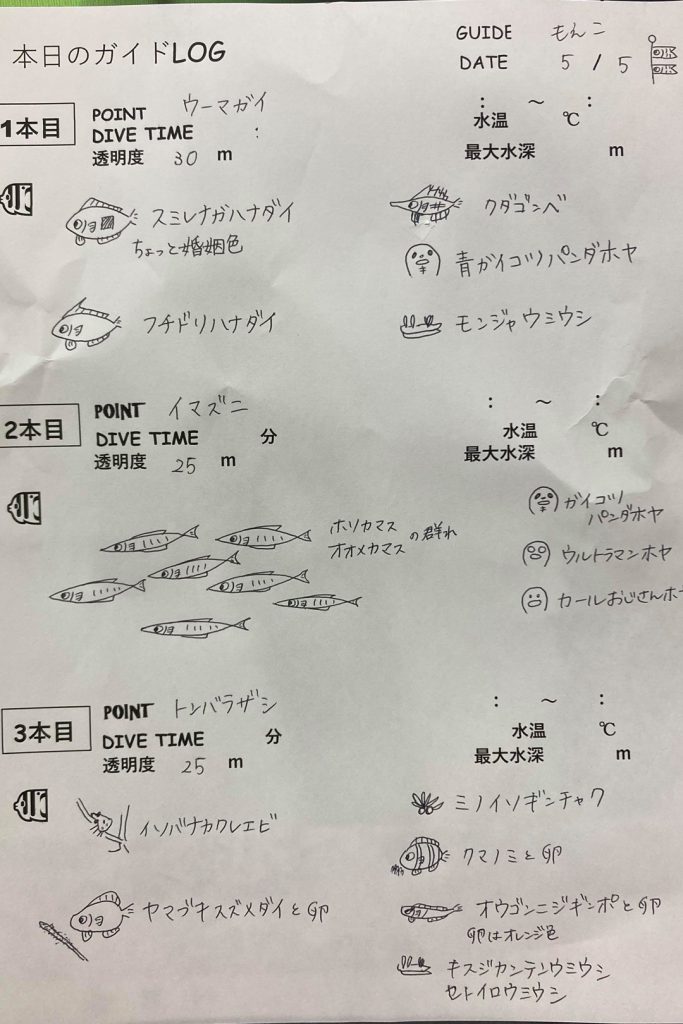 本日のガイドLOG
GUIDE もんこ
DATE 5 / 5
1本目
POINT ウーマガイ
DIVE TIME :
透明度 30 m
: ~ :
水温 ℃
最大水深 m
スミレナガハナダイ
ちょっと婚姻色
フチドリハナダイ
クダゴンベ
青ガイコツパンダホヤ
モンジャウミウシ
2本目
POINT イマズニ
DIVE TIME 分
透明度 25 m
: ~ :
水温 ℃
最大水深 m
ホソカマス
オオメカマス の群れ
ガイコツ
パンダホヤ
ウルトラマンホヤ
カールおじさんホヤ
3本目
POINT トンバラザシ
DIVE TIME 分
透明度 25 m
: ~ :
水温 ℃
最大水深 m
イソバナカクレエビ
ヤマブキスズメダイと卵
ミノイソギンチャク
クマノミと卵
オウゴンニジギンポと卵
卵はオレンジ色
キスジカンテンウミウシ
セトイロウミウシ